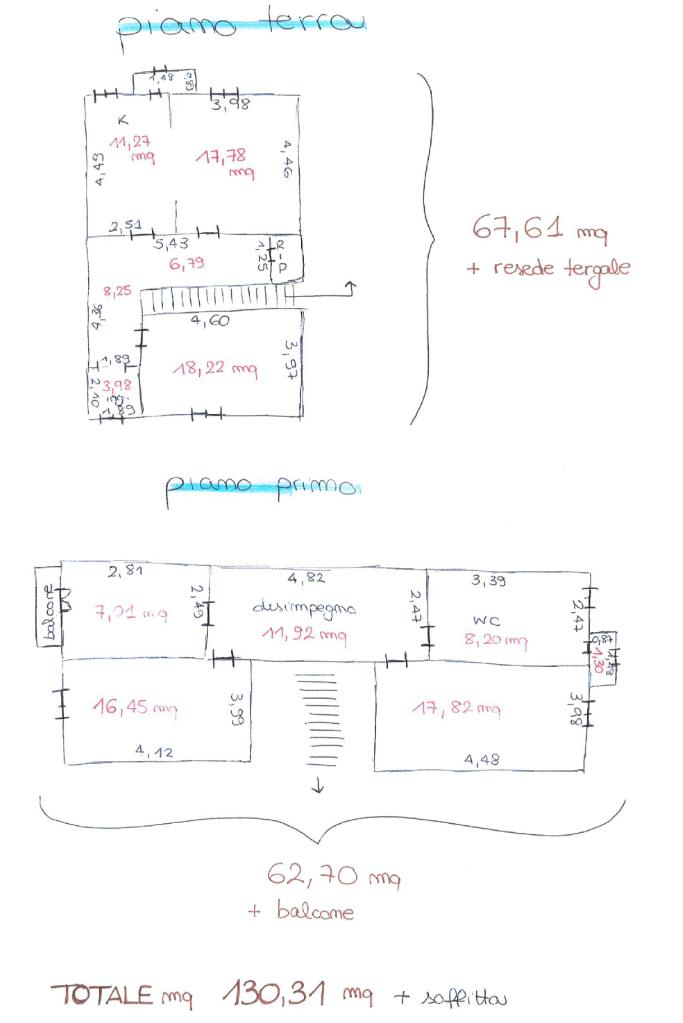 piano terra
1,48
0,83
3,98
K
11,27
mq
4,49
17,78
mq
4,46
2,51
5,43
6,79
1,25
R
-
P
67,61 mq
+ resede tergale
8,25
4,36
4,60
1,89
3,98
2,10
1,89
18,22 mq
3,97
piano primo
balcone
2,81
7,01 mq
2,49
4,82
disimpegno
11,92 mq
2,47
3,39
WC
8,20 mq
2,47
0,87
1,30
16,45 mq
3,99
4,12
17,82 mq
3,98
4,48
62,70 mq
+ balcone
TOTALE mq 130,31 mq + soffitta